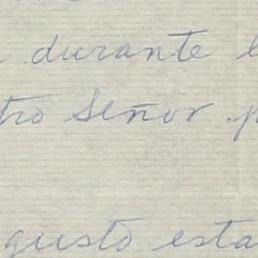 durante
tro Señor p
gusto esta